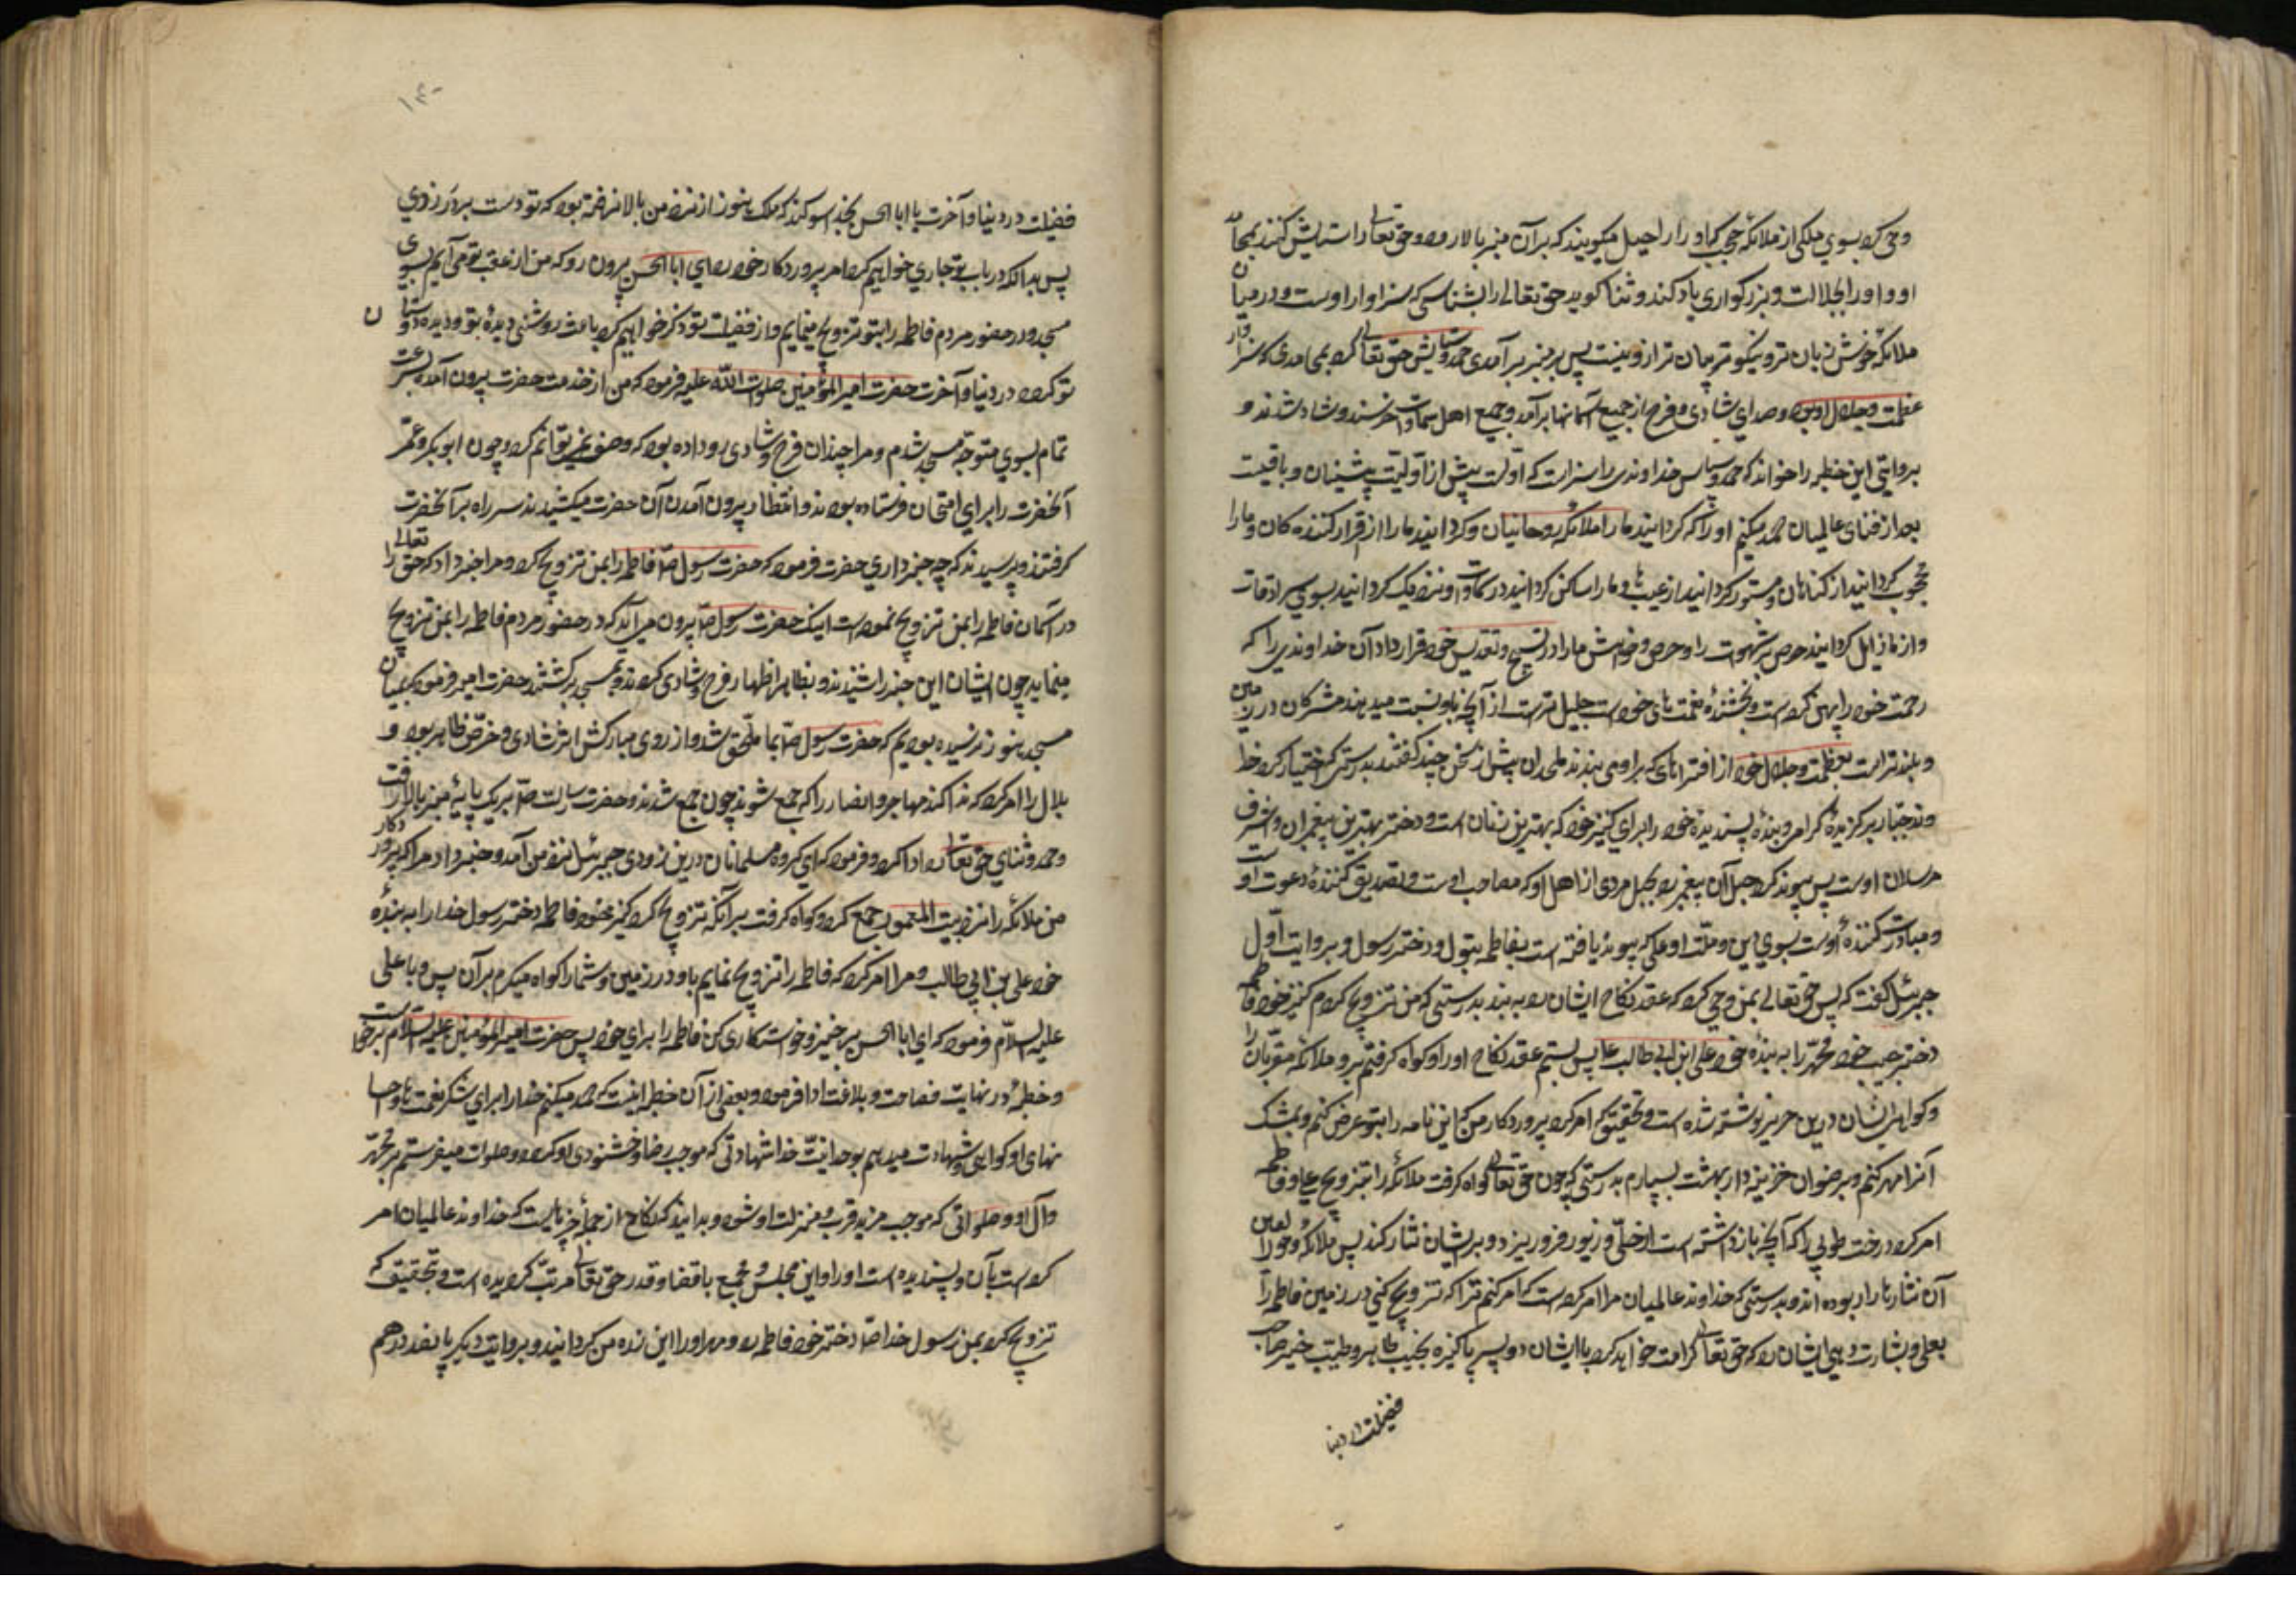 وحی کرد بسوی ملکی از ملائکه حجب که او را راحیل میکویند که بر آن منبر بالا رود و حق تعالی را ستایش کند بمحامد
او و او را بجلالت و بزرکواری یاد کند و ثنا کوید حق تعالی را بثنائی که سزاوار اوست و در میان
ملائکه خوش زبان تر و نیکو تر بیان تر از او نیست پس بر منبر بر آمد و حمد و ستایش حق تعالی کرد بمحامدی که سزاوار
عظمت و جلال او بود و صدای شادی و فرح از جمیع آسمانها برآمد و جمیع اهل سماوات خرسند و شاد شدند و
بروایتی این خطبه را خواند که حمد و سپاس خداوندی را سزاست که اولست پیش از اولیت پیشینیان و باقیست
بعد از فنای عالمیان حمد میکنم او را که کردانید ما را ملائکه روحانیان و کردانید ما را از قرار کننده کان و ما را
محجوب کردانید از کناهان و مستور کردانید از عیب ها و ما را ساکن کردانید در سماوات و نزدیک کردانید بسوی سرادقات
و از ما زایل کردانید حرص شهوت را و حرص و خواهش ما را در تسبیح و تقدیس خود قرار داد آن خداوندی را که
رحمت خود را پهن کرده است و بخشندهٔ نعمت های خود است جلیل تر است از آنچه باو نسبت میدهند مشرکان در زمین
و بلند تر است بعظمت و جلال خود از افتراهای که بر او می بندند ملحدان پس از سخن چند کفتند بدرستی که اختیار کرد
خداوند جبار برکزیدهٔ کرام و بندهٔ پسندیده خود را برای کنیز خود که بهترین زنان است و دختر بهترین پیغمبران و اشرف
مرسلان اوست پس پیوند کرد حبل آن پیغمبر را بحبل مردی از اهل او که مصاحب اوست و تصدیق کنندهٔ دعوت اوست
و مبادرت کنندهٔ اوست بسوی دین و ملت او علی که پیوند یافته است بفاطمه بتول و دختر رسول و بروایت اول
جبرئیل کفت که پس حق تعالی بمن وحی کرد که عقد نکاح ایشان را به بند بدرستی که من تزویج کردم کنیز خود فاطمه
دختر حبیب خود محمد را به بندهٔ خود علی ابن ابی طالب پس بستم عقد نکاح او را و کواه کرفتم بر او ملائکه مقربان را
و کواهی ایشان درین حریر نوشته شده است و بتحقیق که امر کرد پروردکار من که این نامه را بتو عرض کنم و بمشک
آنرا مهر کنم و برضوان خزینه دار بهشت بسپارم بدرستی که چون حق تعالی کواه کرفت ملائکه را بتزویج علی و فاطمه
امر کرد درخت طوبی را که آنچه بار داشته است از حلی و زیور فرو ریزد و بر ایشان نثار کند پس ملائکه و حور العین
آن نثارها را ربوده اند و بدرستی که خداوند عالمیان مرا امر کرده است که امر کنم ترا که تزویج کنی در زمین فاطمه را
بعلی و بشارت دهی ایشان را که حق تعالی کرامت خواهد کرد با ایشان دو پسر پاکیزه نجیب طاهر و طیب خیر صاحب
فضیلت در دنیا
۱۴۰
فضیلت در دنیا و آخرت یا ابا الحسن بخدا سوکند که ملک هنوز از نزد من بالا نرفته بود که تو دست بر در زدی
پس بدانکه در باب تو جاری خواهیم کرد امر پروردکار خود را ای ابا الحسن بیرون رو که من از عقب تو می آیم بسوی
مسجد و در حضور مردم فاطمه را بتو تزویج مینمایم و از فضیلت تو ذکر خواهیم کرد باعث روشنی دیدهٔ تو و دیده دوستان
تو کردد در دنیا و آخرت حضرت امیر المؤمنین صلوات الله علیه فرمود که من از خدمت حضرت بیرون آمده بسرعت
تمام بسوی متوجه مسجد شدم و مرا چندان فرح و شادی رو داده بود که وصف نمی توانم کرد و چون ابو بکر و عمر
آنحضرت را برای امتحان فرستاده بودند و انتظار بیرون آمدن آن حضرت میکشیدند سر راه بر آنحضرت
کرفتند و پرسیدند که چه خبر داری حضرت فرمود که حضرت رسول ص فاطمه را بمن تزویج کرد و مرا خبر داد که حق تعالی
در آسمان فاطمه را بمن تزویج نموده است اینک حضرت رسول ص بیرون می آید که در حضور مردم فاطمه را بمن تزویج
مینماید چون ایشان این خبر را شنیدند و بظاهر اظهار فرح و شادی کردند و بمسجد برکشتند حضرت امیر فرمود که بمیان
مسجد هنوز نرسیده بودیم که حضرت رسول ص بما ملحق شد و از روی مبارکش اثر شادی و خرمی ظاهر بود و
بلال را امر کرد که ندا کند مهاجر و انصار را که جمع شوند چون جمع شدند و حضرت رسالت ص بر یک پایهٔ منبر بالا رفت
و حمد و ثنای حق تعالی را ادا کرد و فرمود که ای کروه مسلمانان درین زودی جبرئیل نزد من آمد و خبر داد مرا که پروردکار
من ملائکه را نزد بیت المعمور جمع کرد و کواه کرفت بر آنکه تزویج کرد کنیز خود فاطمه دختر رسول خدا را به بندهٔ
خود علی بن ابی طالب و مرا امر کرد که فاطمه را تزویج نمایم باو در زمین و شما را کواه میکیرم بر آن پس با علی
علیه السلام فرمود که ای ابا الحسن برخیز و خواستکاری کن فاطمه را برای خود پس حضرت امیر المؤمنین علیه السلام برخواست
و خطبهٔ در نهایت فصاحت و بلاغت ادا فرمود و بعضی از آن خطبه اینست که حمد میکنم خدا را برای شکر نعمت ها و احسا
نهای او کواهی و شهادت میدهم بوحدانیت خدا شهادتی که موجب رضا و خشنودی او کردد و صلوات میفرستم بر محمد
و آل او صلواتی که موجب مزید قرب و منزلت او شود و بدانید که نکاح از جملهٔ چیزهایست که خداوند عالمیان امر
کرده است بآن و پسندیده است او را و این مجلس و مجمع باقضا و قدر حق تعالی مرتب کردیده است و بتحقیق که
تزویج کرد بمن رسول خدا ص دختر خود فاطمه را و مهر او را این زره من کردانید و بروایت دیکر پانصد درهم